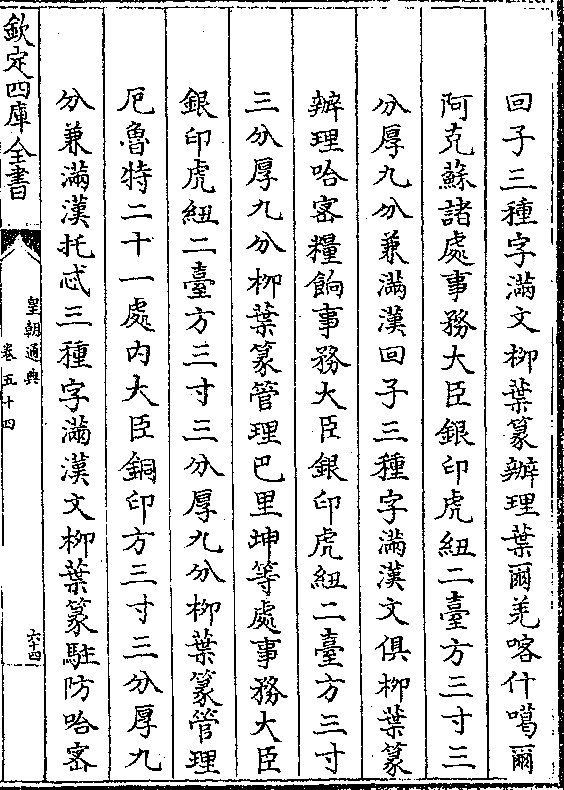 回子三種字滿文柳葉篆辦理葉爾羌喀什噶爾
阿克蘇諸處事務大臣銀印虎紐二臺方三寸三
分厚九分兼滿漢回子三種字滿漢文俱柳葉篆
辦理哈密糧餉事務大臣銀印虎紐二臺方三寸
三分厚九分柳葉篆管理巴里坤等處事務大臣
銀印虎紐二臺方三寸三分厚九分柳葉篆管理
厄魯特二十一處内大臣銅印方三寸三分厚九
分兼滿漢托忒三種字滿漢文柳葉篆駐防哈密
欽定四庫全書
皇朝通典
卷五十四
六十四